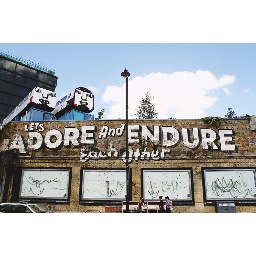 LETS
ADORE And ENDURE
Each Other